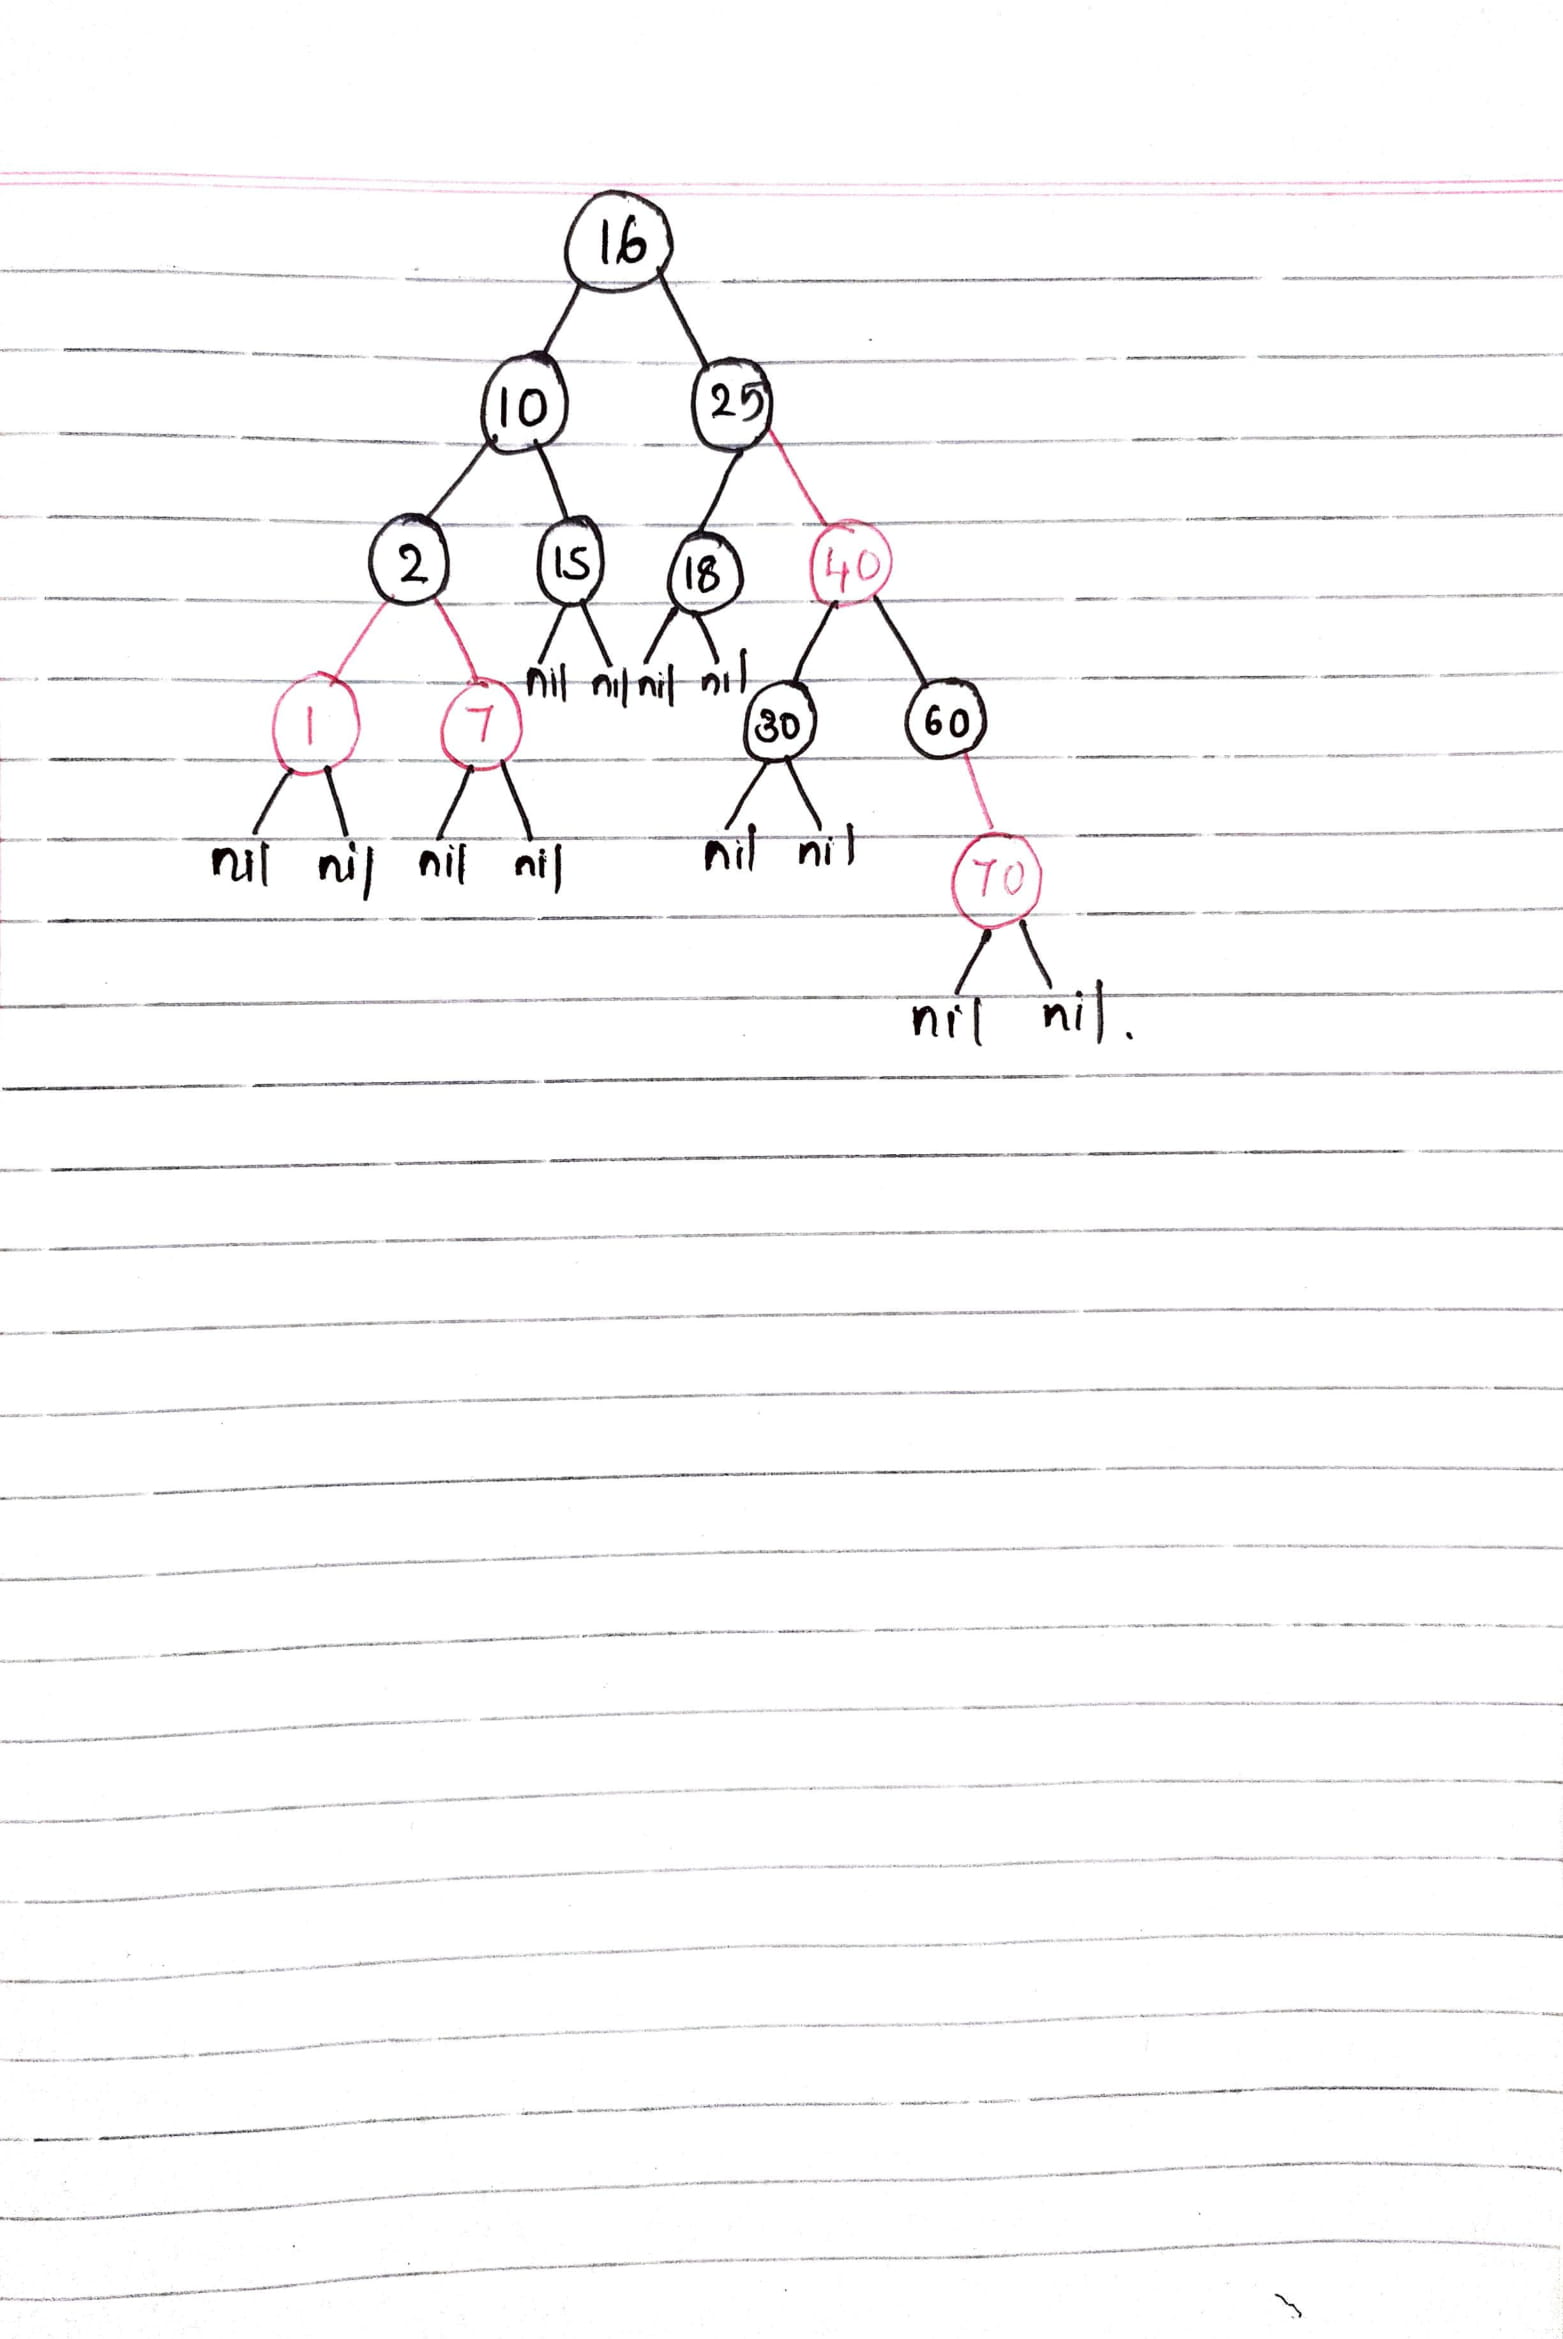 16
10 25
2 15 18 40
nil nil nil nil
1 7 30 60
nil nil nil nil nil nil
70
nil nil.